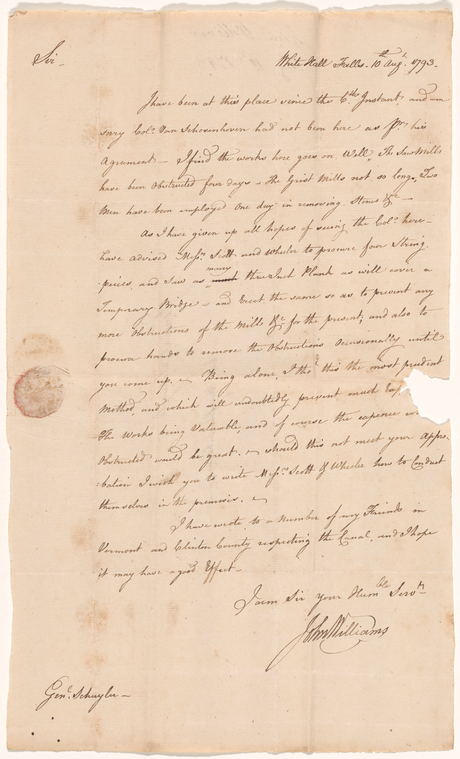 Sir—
White Hall Falls. 10th Augt. 1793.
I have been at this place since the 6th Instant, and am
sorry Colo. Van Schoonhoven had not been here as Pr. his
Agreement— I find the works here goes on Well, The Saw Mills
have been Obstructed four days— The Grist Mills not so long, Two
Men have been employed One day in removing Stones &c—
As I have given up all hopes of seeing the Colo. here—
have advised Messrs. Scott and Wheeler to procure four String
pieces, and Saw as much many three Inch Plank as will cover a
Temporary Bridge— and Erect the same so as to prevent any
more Obstructions of the Mills &c. for the present, and also to
procure hands to remove the Obstructions Occasionally until
you come up. Being alone, I thot. this the most prudent
Method, and which will undoubtedly prevent much
The Works being Valuable, and of course the expence
Obstructed would be great. should this not meet your Appro-
bation I wish you to write Messrs. Scott & Wheeler how to Conduct
themselves in the premises.
I have wrote to a Number of my Friends in
Vermont and Clinton County respecting the Canal, and I hope
it may have a good Effect—
I am Sir your Humble Servt.
John Williams
Genl. Schuyler—